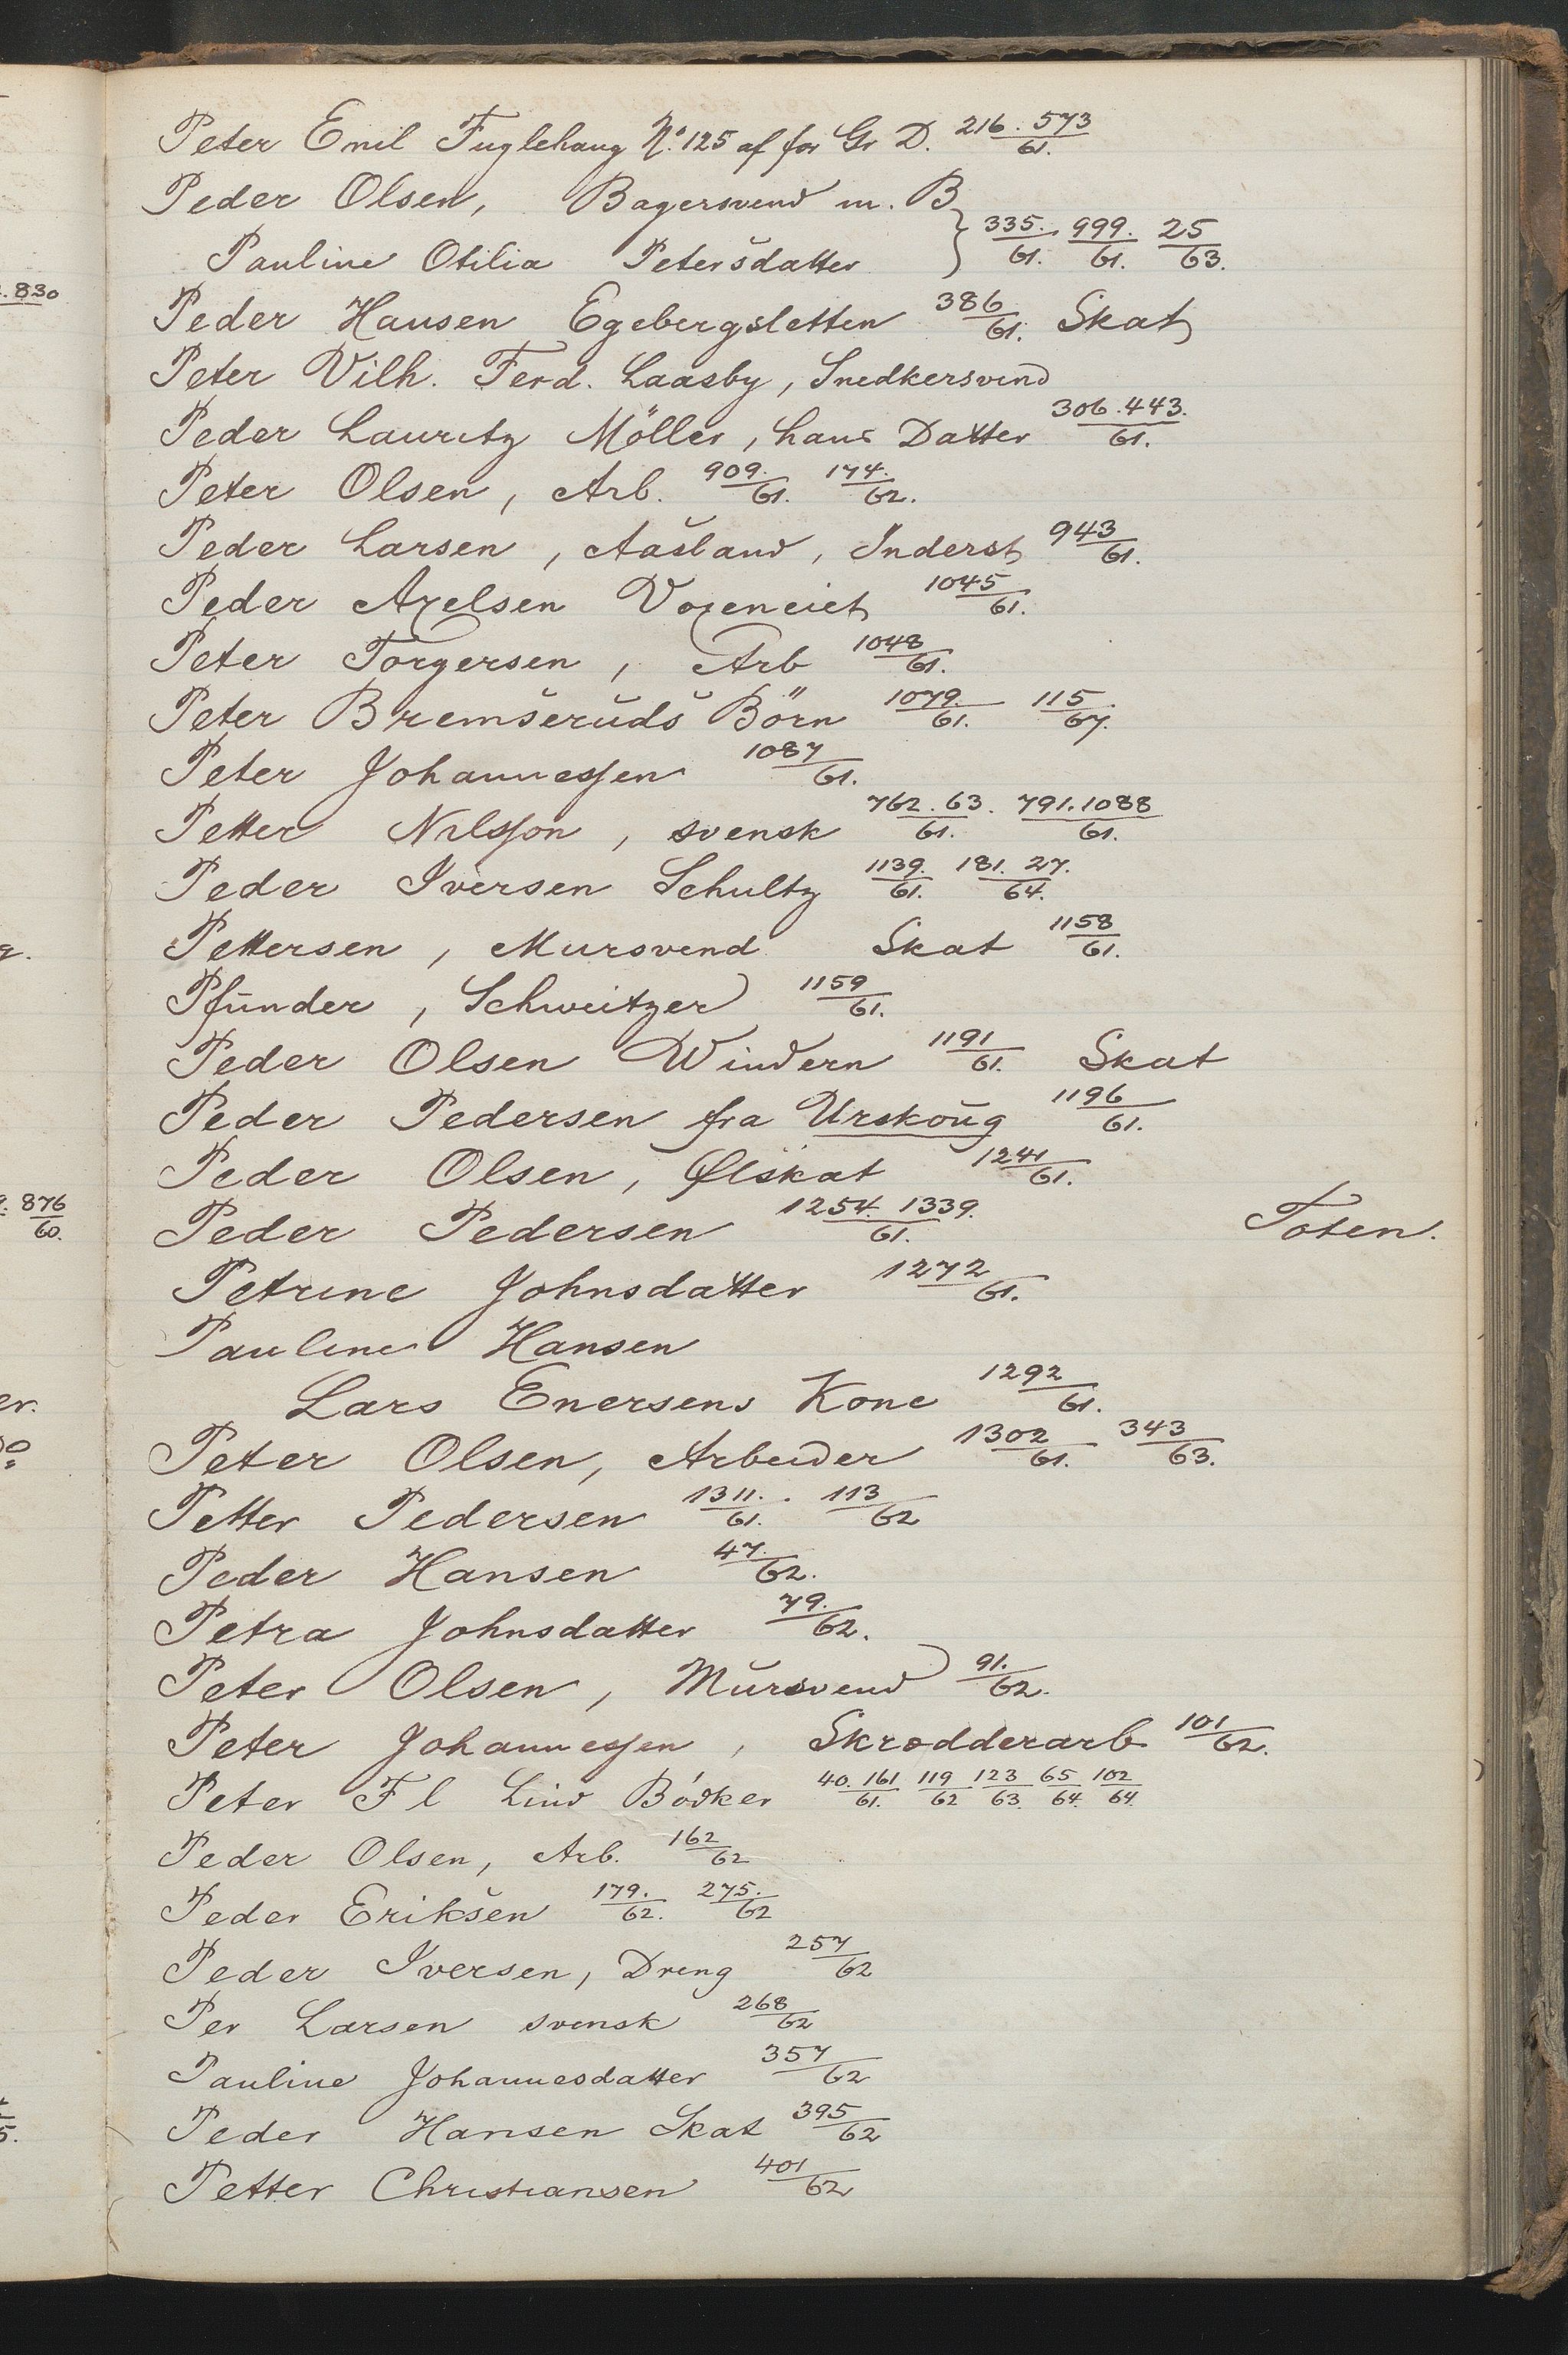 Peter Emil Fuglehaug No. 125 af for Gr D. 216. 573/61.
Peder Olsen, Bagersvend m. B
Pauline Otilia Petersdatter } 335./61. 999./61. 25/63.
Peder Hansen Egebergsletten 386/61. Skat
Peter Vilh. Ferd. Laasby, Snedkersvend
Peder Lauritz Möller, hans Datter 306.443./61.
Peter Olsen, Arb. 909./61. 174./62.
Peder Larsen, Aasland, Inderst 943/61.
Peder Axelsen Voxeneiet 1045/61.
Peter Torgersen, Arb 1048/61.
Peter Bremseruds Börn 1079./61. 115./67.
Peter Johannessen 1087/61.
Petter Nilsson, svensk 762.63./61. 791.1088/61.
Peder Iversen Schultz 1139./61. 181. 27./64.
Pettersen, Mursvend Skat 1158/61.
Pfunder, Schweitzer 1159/61.
Peder Olsen Windern 1191/61. Skat
Peder Pedersen fra Urskoug 1196/61.
Peder Olsen, Ølskat 1241/61.
Peder Pedersen 1254. 1339./61. Toten.
Petrine Johnsdatter 1272/61.
Pauline Hansen
Lars Enersens Kone 1292/61.
Peter Olsen, Arbeider 1302/61. 343/63.
Petter Pedersen 1311./61. 113/62
Peder Hansen 47./62.
Petra Johnsdatter 79./62.
Peter Olsen, Mursvend 91./62.
Peter Johannessen, Skrædderarb 101/62.
Peter Fl Lind Bödker 40. 161/61. 119/62 123/63. 65/64. 102/64.
Peder Olsen, Arb. 162/62
Peder Eriksen 179./62. 275./62
Peder Iversen, Dreng 257/62
Per Larsen svensk 268/62
Pauline Johannesdatter 357/62
Peder Hansen Skat 395/62
Petter Christiansen 401/62
.830
876/60.